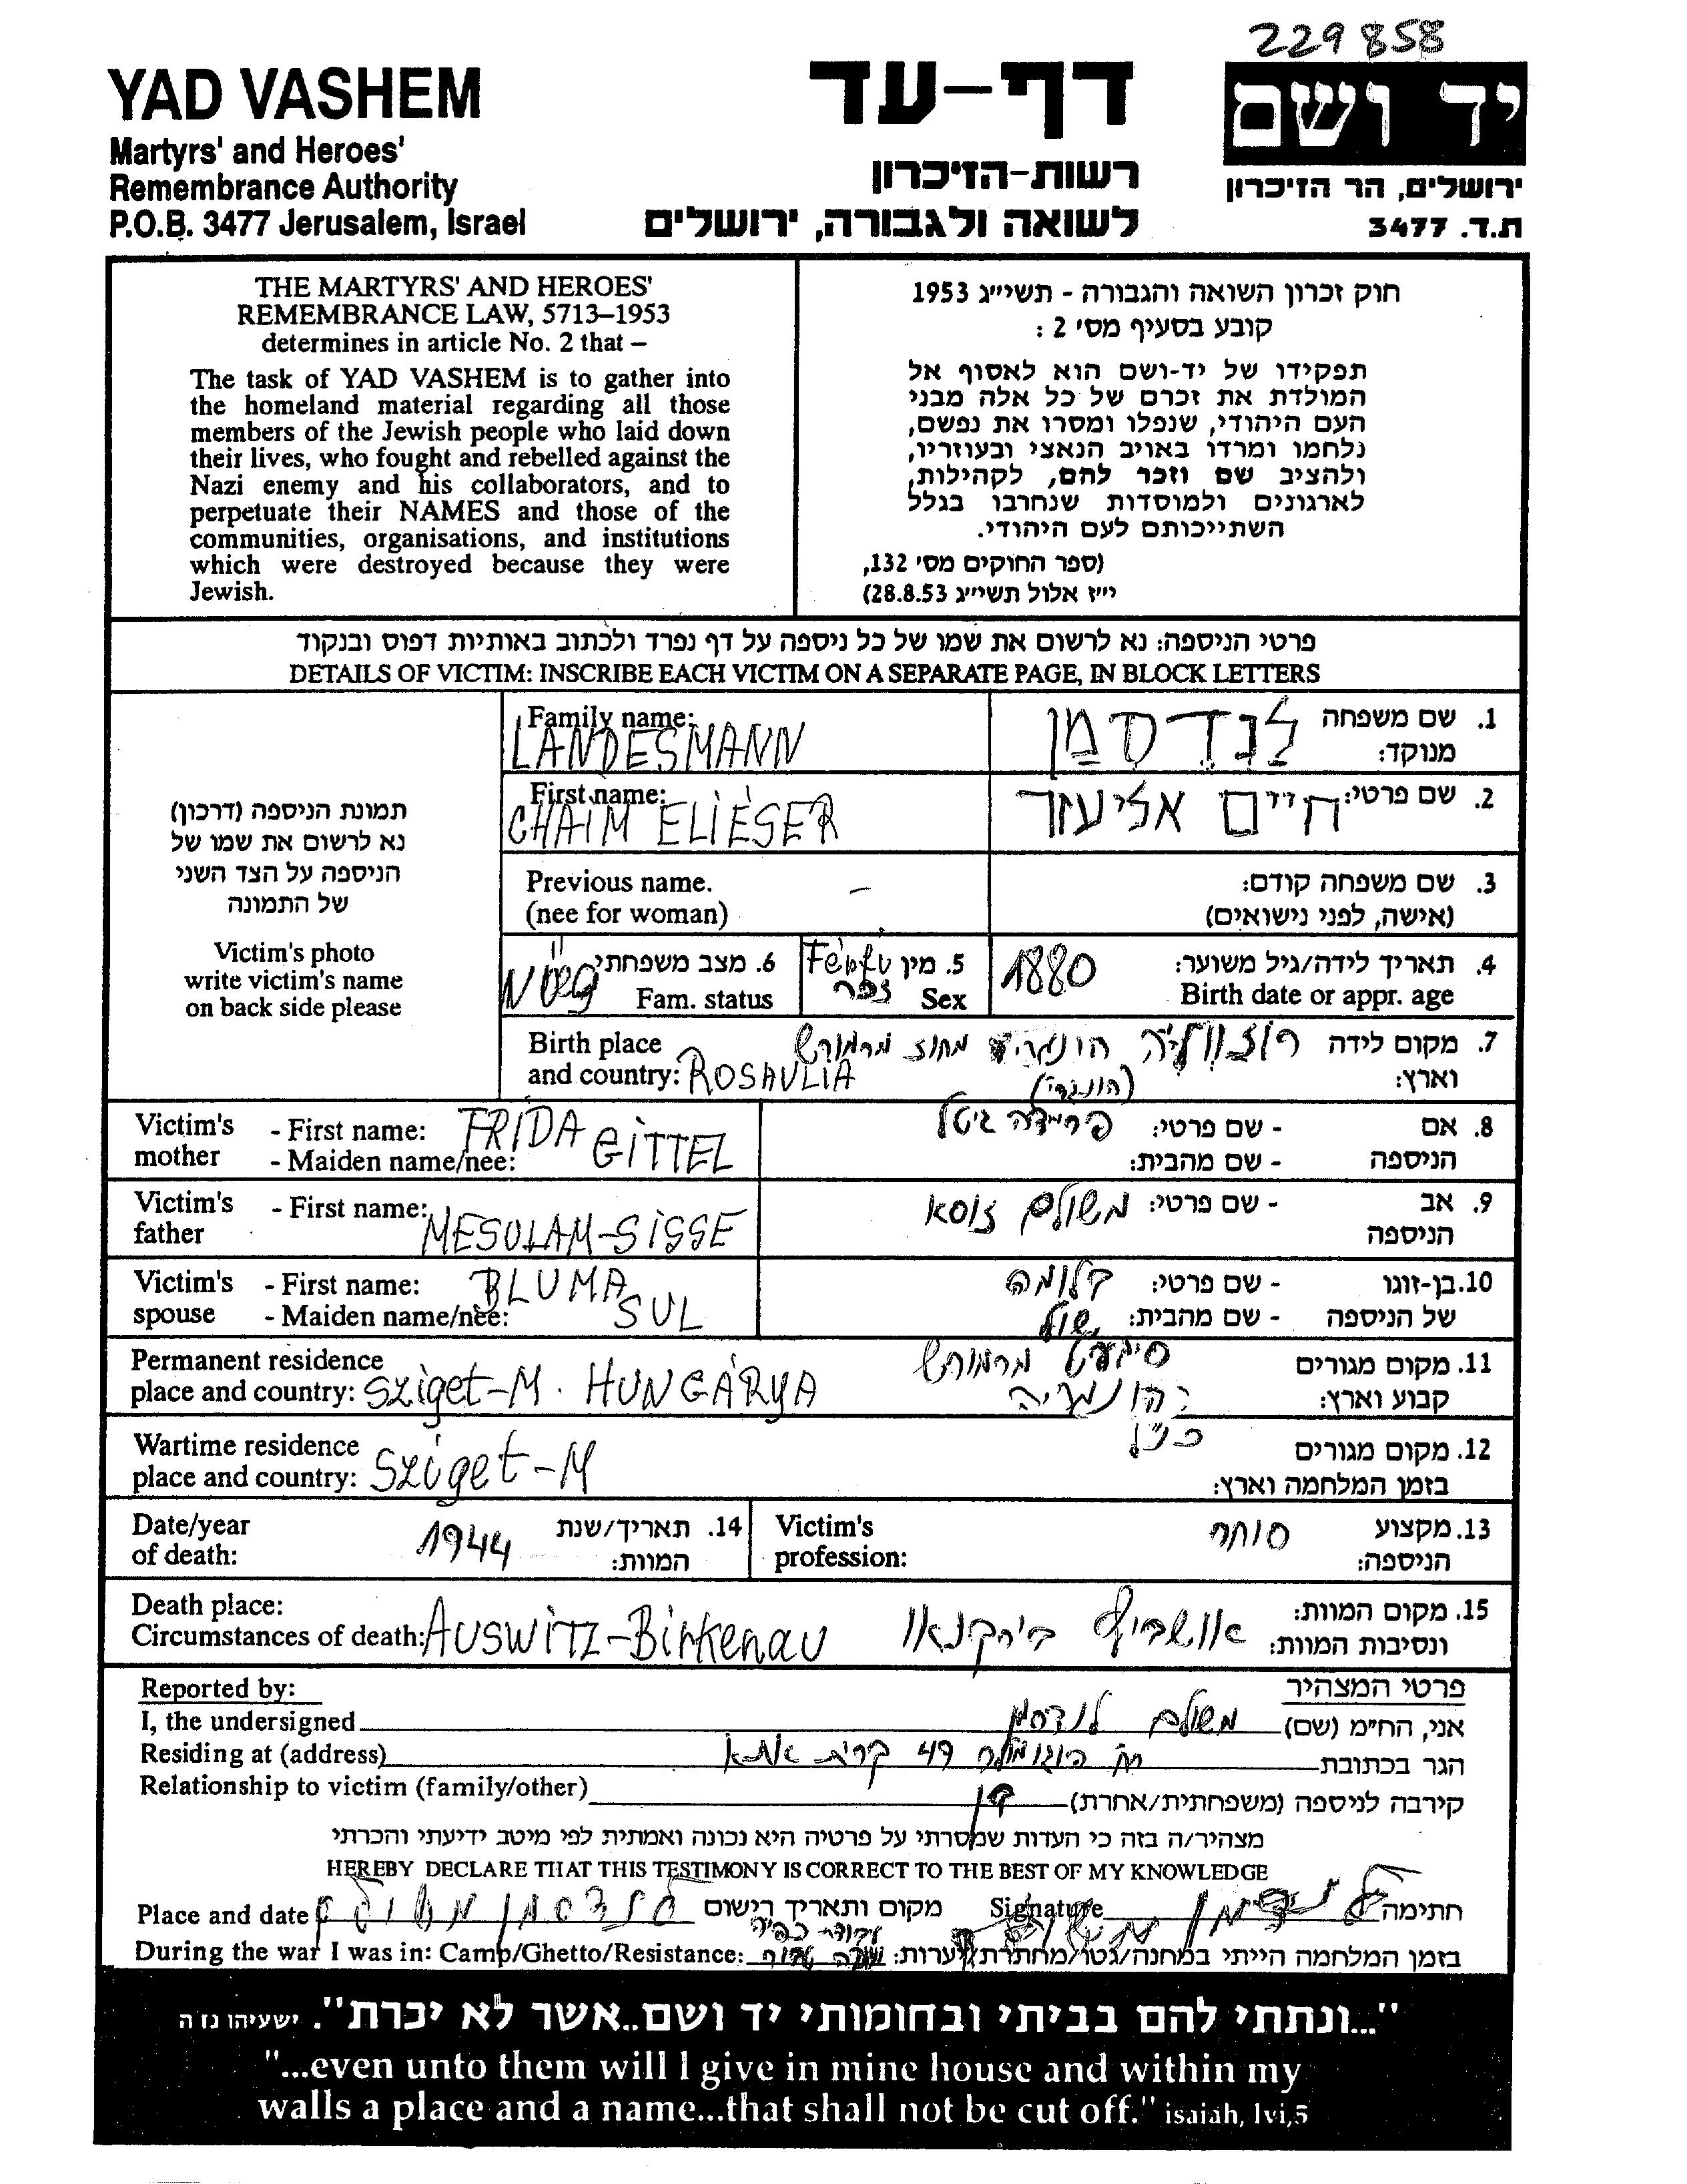 229858
YAD VASHEM
Martyrs' and Heroes'
Remembrance Authority
P.O.B. 3477 Jerusalem, Israel
דף-עד
רשות-הזיכרון
לשואה ולגבורה, ירושלים
יד ושם
ירושלים, הר הזיכרון
ת.ד. 3477
THE MARTYRS' AND HEROES'
REMEMBRANCE LAW, 5713–1953
determines in article No. 2 that –
The task of YAD VASHEM is to gather into
the homeland material regarding all those
members of the Jewish people who laid down
their lives, who fought and rebelled against the
Nazi enemy and his collaborators, and to
perpetuate their NAMES and those of the
communities, organisations, and institutions
which were destroyed because they were
Jewish.
חוק זכרון השואה והגבורה - תשי״ג 1953
קובע בסעיף מס' 2 :
תפקידו של יד-ושם הוא לאסוף אל
המולדת את זכרם של כל אלה מבני
העם היהודי, שנפלו ומסרו את נפשם,
נלחמו ומרדו באויב הנאצי ובעוזריו,
ולהציב שם וזכר להם, לקהילות,
לארגונים ולמוסדות שנחרבו בגלל
השתייכותם לעם היהודי.
(ספר החוקים מס' 132,
י״ז אלול תשי״ג 28.8.53)
פרטי הניספה: נא לרשום את שמו של כל ניספה על דף נפרד ולכתוב באותיות דפוס ובנקוד
DETAILS OF VICTIM: INSCRIBE EACH VICTIM ON A SEPARATE PAGE, IN BLOCK LETTERS
תמונת הניספה (דרכון)
נא לרשום את שמו של
הניספה על הצד השני
של התמונה
Victim's photo
write victim's name
on back side please
Family name: LANDESMANN
1. שם משפחה מנוקד: לנדסמן
First name: CHAIM ELIÉSER
2. שם פרטי: חיים אליעזר
Previous name. –
(nee for woman)
3. שם משפחה קודם:
(אישה, לפני נישואים)
4. תאריך לידה/גיל משוער: 1880
Birth date or appr. age
5. מין זכר
Sex
6. מצב משפחתי
Fam. status
7. מקום לידה
וארץ: רוזווליה הונגריה מחוז מרמורש
Birth place
and country: ROSAVLIA
Victim's mother - First name: FRIDA GITTEL
- Maiden name/nee:
8. אם הניספה - שם פרטי: פריידה גיטל
- שם מהבית:
Victim's father - First name: MESULAM-SISSE
9. אב הניספה - שם פרטי: משולם זוסא
Victim's spouse - First name: BLUMA
- Maiden name/nee: SUL
10. בן-זוגו של הניספה - שם פרטי: בלומה
- שם מהבית: שול
Permanent residence
place and country: Sziget-M. HUNGÁRYA
11. מקום מגורים
קבוע וארץ: סיגעט מרמורש
הונגריה
Wartime residence
place and country: Sziget-M
12. מקום מגורים
בזמן המלחמה וארץ: כנ"ל
Date/year
of death: 1944
14. תאריך/שנת
המוות:
Victim's
profession:
13. מקצוע
הניספה: סוחר
Death place:
Circumstances of death: AUSWITZ-Birkenau
15. מקום המוות:
ונסיבות המוות: אושביץ בירקנאו
Reported by:
פרטי המצהיר
I, the undersigned
אני, הח״מ (שם) משולם לנדסמן
Residing at (address)
הגר בכתובת 49 קרית אתא
Relationship to victim (family/other)
קירבה לניספה (משפחתית/אחרת) בן
מצהיר/ה בזה כי העדות שמסרתי על פרטיה היא נכונה ואמתית לפי מיטב ידיעתי והכרתי
HEREBY DECLARE THAT THIS TESTIMONY IS CORRECT TO THE BEST OF MY KNOWLEDGE
Place and date לנדסמן משולם מקום ותאריך רישום
Signature לנדסמן משולם חתימה
During the war I was in: Camp/Ghetto/Resistance: עבודת כפיה
בזמן המלחמה הייתי במחנה/גטו/מחתרת/יערות:
"...ונתתי להם בביתי ובחומותי יד ושם..אשר לא יכרת". ישעיהו נו ה
"...even unto them will I give in mine house and within my
walls a place and a name...that shall not be cut off." isaiah, lvi,5